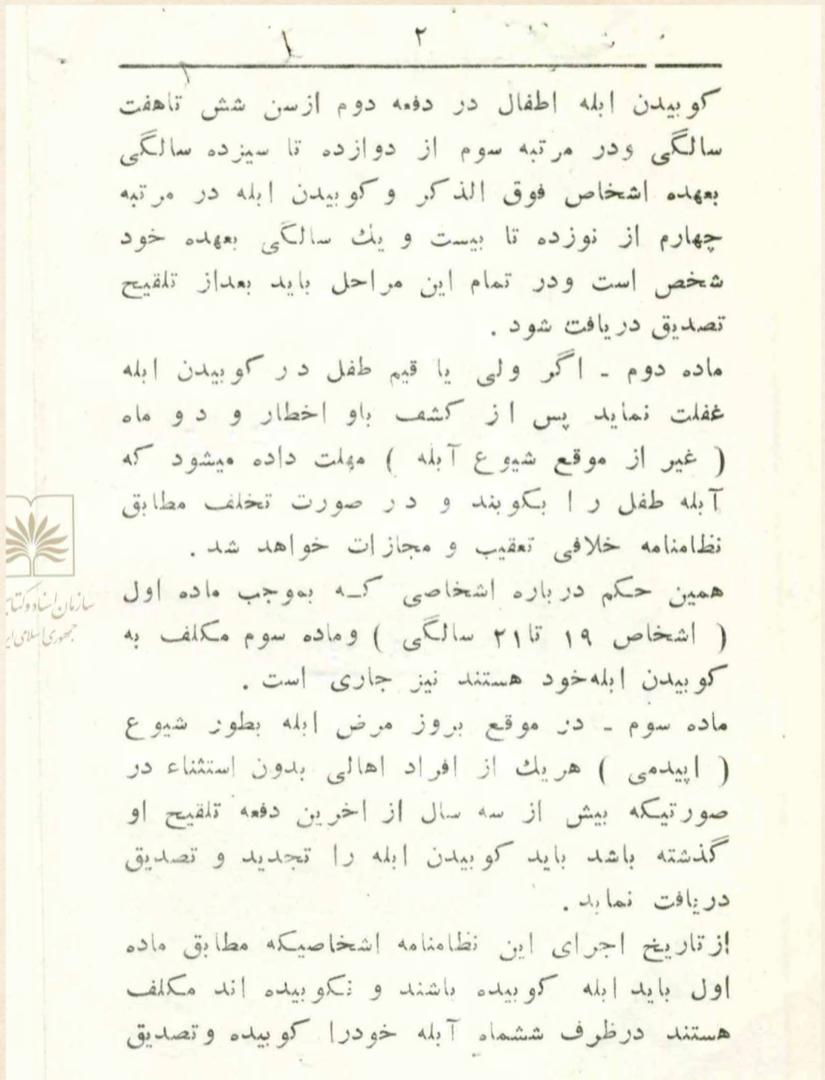 ۲
کوبیدن ابله اطفال در دفعه دوم ازسن شش تاهفت
سالگی ودر مرتبه سوم از دوازده تا سیزده سالگی
بعهده اشخاص فوق الذکر وکوبیدن ابله در مرتبه
چهارم از نوزده تا بیست و یك سالگی بعهده خود
شخص است ودر تمام این مراحل باید بعداز تلقیح
تصدیق دریافت شود .
ماده دوم ـ اگر ولی یا قیم طفل در کوبیدن ابله
غفلت نماید پس از کشف باو اخطار و دو ماه
( غیر از موقع شیوع آبله ) مهلت داده میشود که
آبله طفل را بکوبند و در صورت تخلف مطابق
نظامنامه خلافی تعقیب و مجازات خواهد شد .
همین حکم درباره اشخاصی کـه بموجب ماده اول
( اشخاص ۱۹ تا۲۱ سالگی ) وماده سوم مکلف به
کوبیدن ابله‌خود هستند نیز جاری است .
ماده سوم ـ در موقع بروز مرض ابله بطور شیوع
( اپیدمی ) هریك از افراد اهالی بدون استثناء در
صورتیکه بیش از سه سال از اخرین دفعه تلقیح او
گذشته باشد باید کوبیدن ابله را تجدید و تصدیق
دریافت نماید .
ازتاریخ اجرای این نظامنامه اشخاصیکه مطابق ماده
اول باید ابله کوبیده باشند و نکوبیده اند مکلف
هستند درظرف ششماه آبله خودرا کوبیده وتصدیق
سازمان اسناد و کتا
جمهوری اسلامی ایر